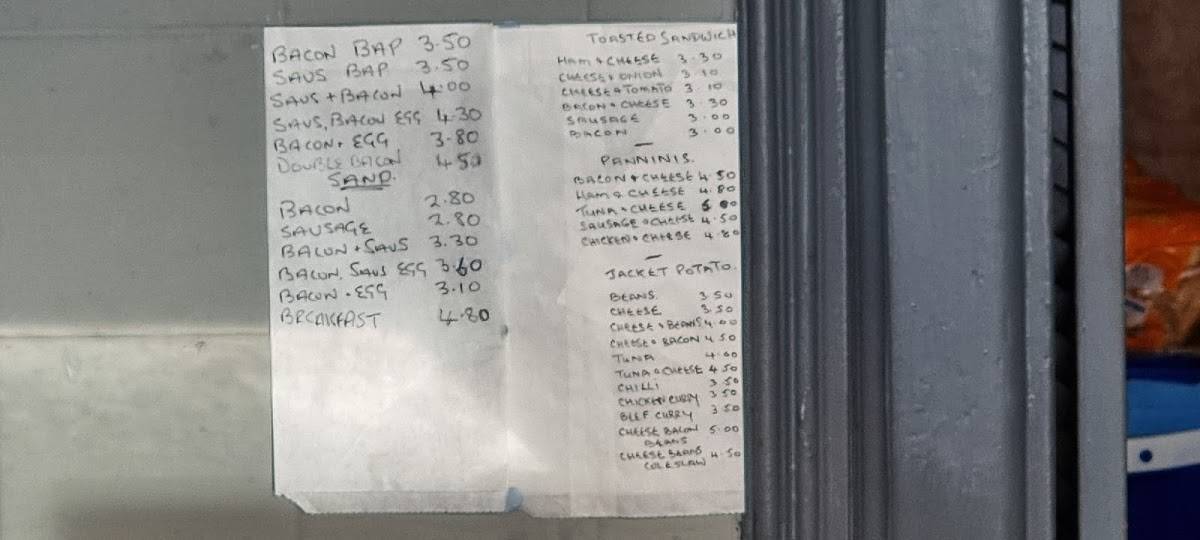 BACON BAP 3.50
SAUS BAP 3.50
SAUS + BACON 4.00
SAUS, BACON EGG 4.30
BACON + EGG 3.80
DOUBLE BACON 4.50
SAND.
BACON 2.80
SAUSAGE 2.80
BACON + SAUS 3.30
BACON, SAUS EGG 3.60
BACON + EGG 3.10
BREAKFAST 4.80
TOASTED SANDWICH
HAM + CHEESE 3.30
CHEESE + ONION 3.10
CHEESE + TOMATO 3.10
BACON + CHEESE 3.30
SAUSAGE 3.00
BACON 3.00
PANNINIS.
BACON + CHEESE 4.50
HAM & CHEESE 4.80
TUNA + CHEESE
SAUSAGE + CHEESE 4.50
CHICKEN + CHEESE 4.80
JACKET POTATO.
BEANS. 3.50
CHEESE 3.50
CHEESE + BEANS 4.00
CHEESE + BACON 4.50
TUNA 4.00
TUNA + CHEESE 4.50
CHILLI 3.50
CHICKEN CURRY 3.50
BEEF CURRY 3.50
CHEESE BACON 5.00
BEANS
CHEESE BEANS 4.50
COLESLAW